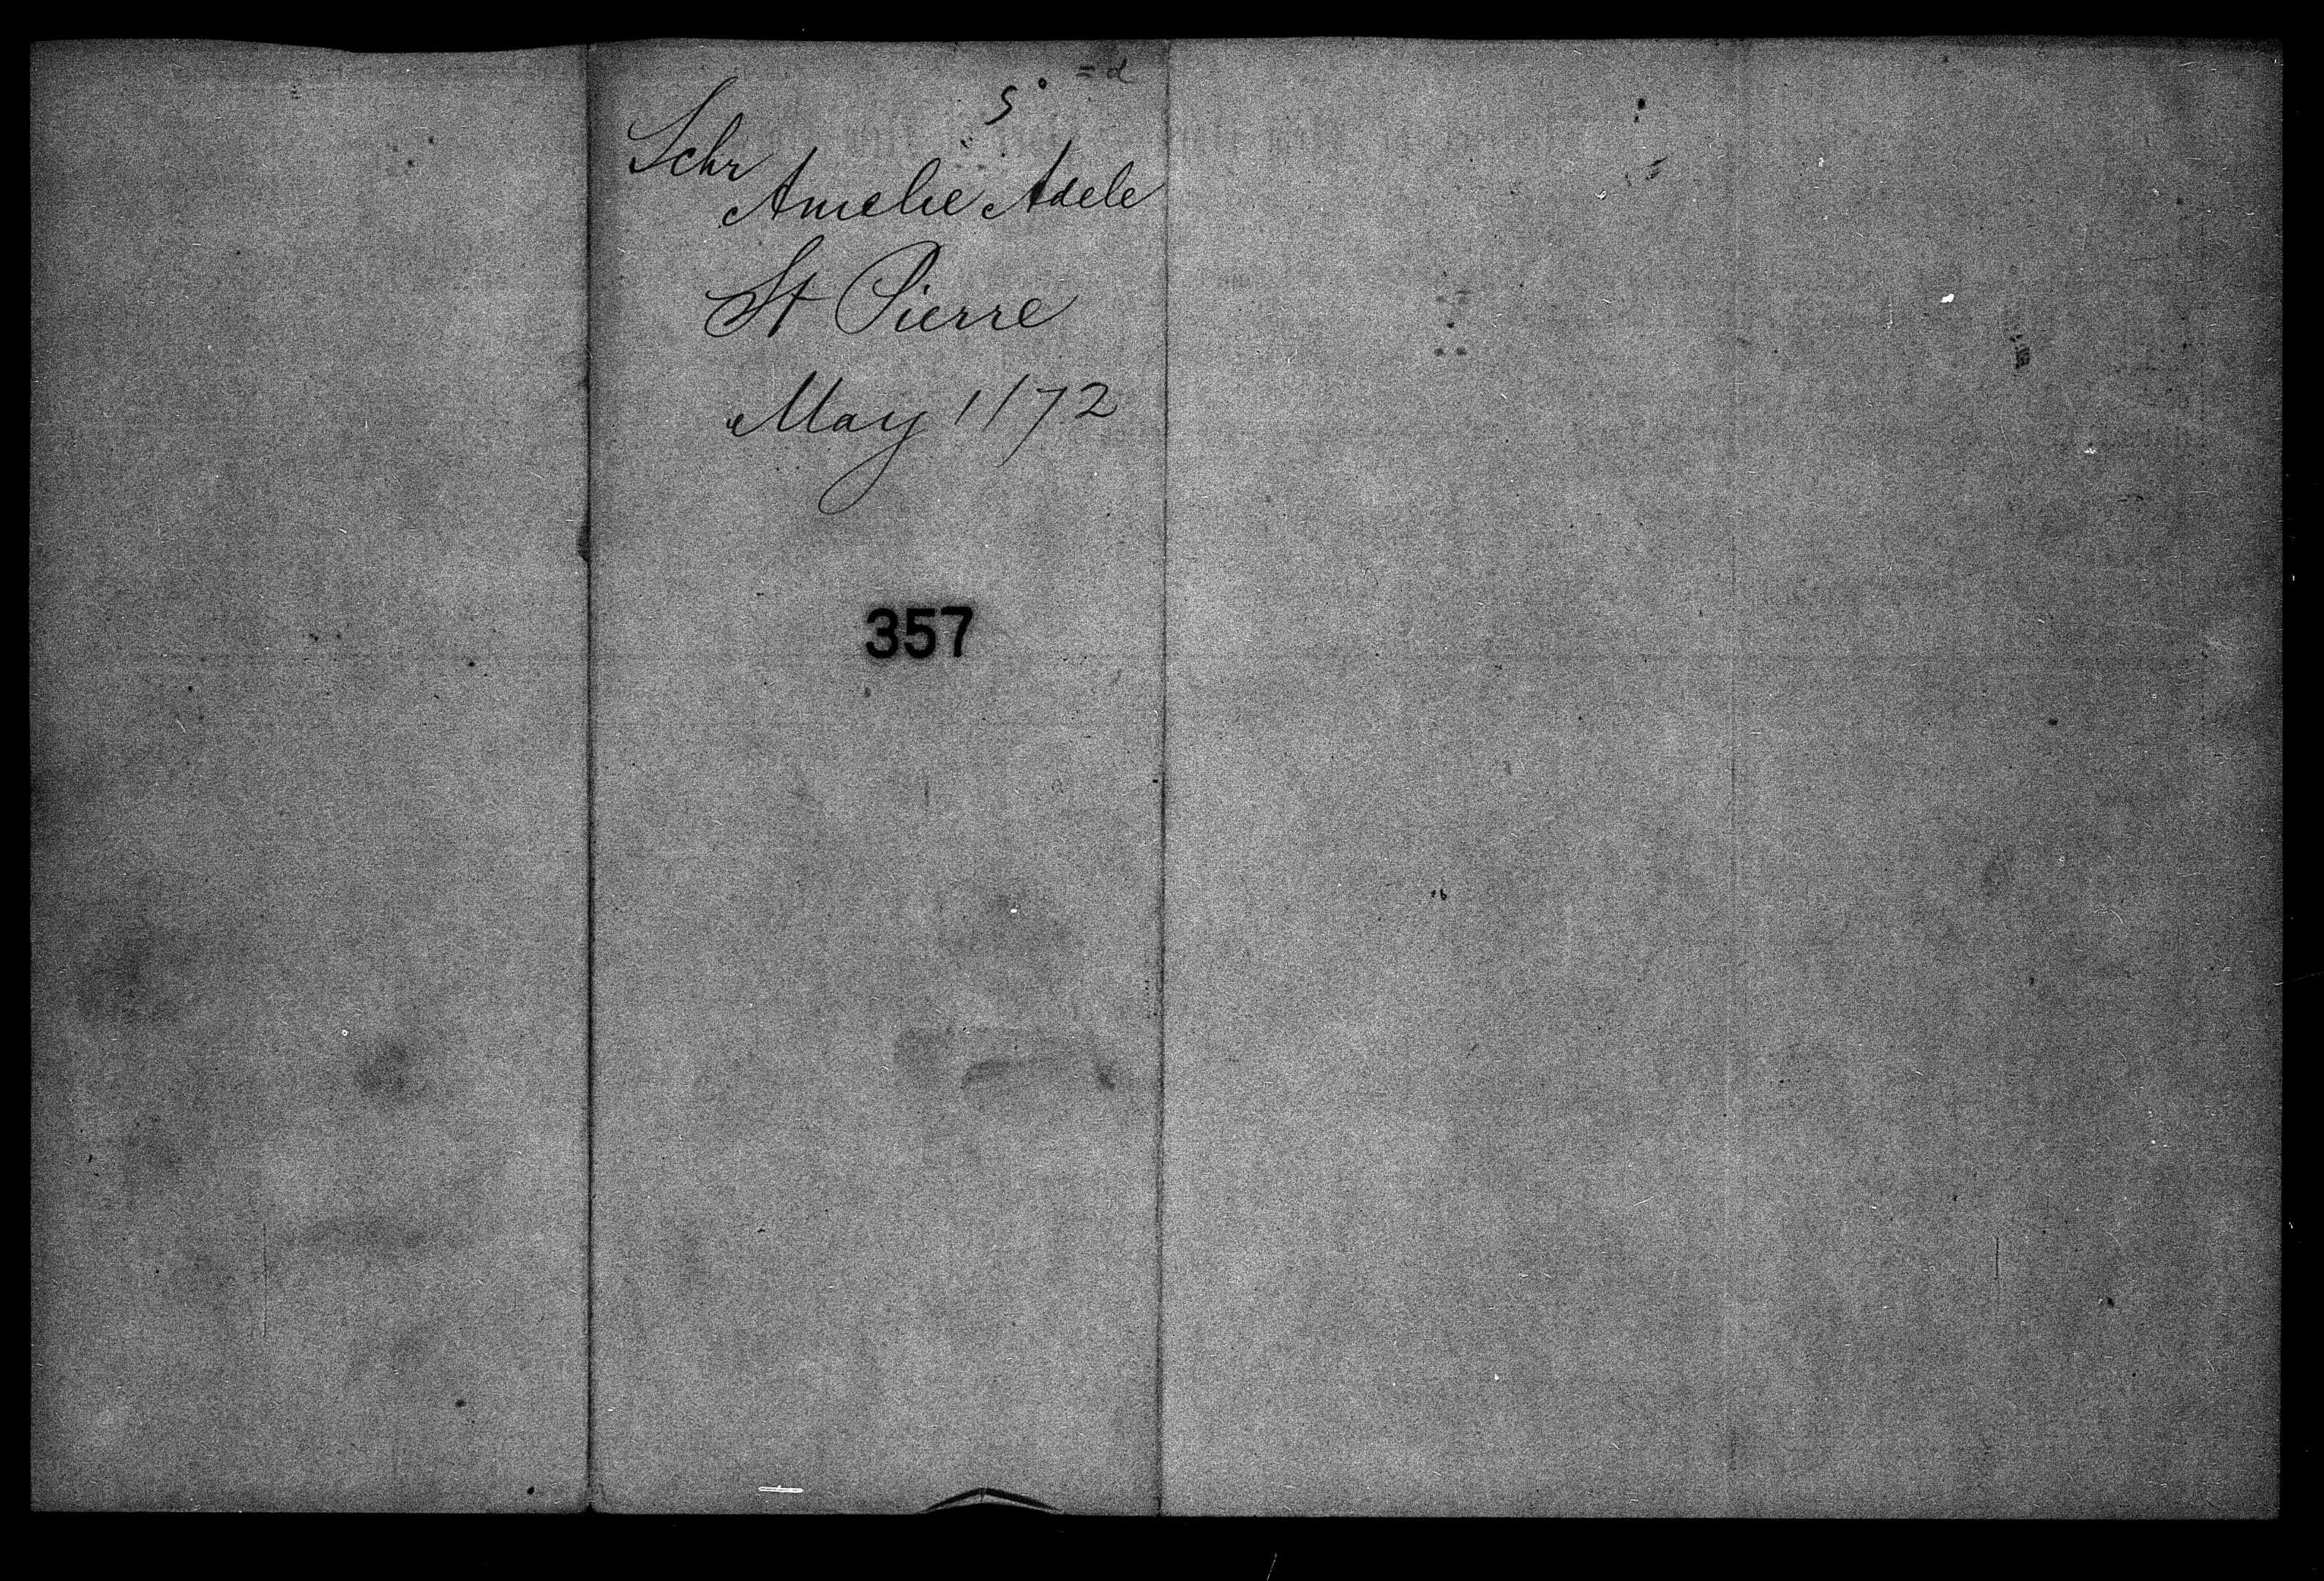 5°
Schr
Amelie Adele
St Pierre
May 1/72
357